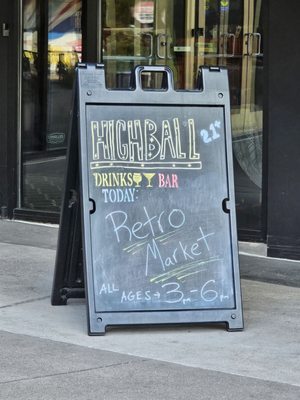 HIGHBALL 21+
DRINKS BAR
TODAY:
Retro
Market
ALL AGES → 3PM - 6PM